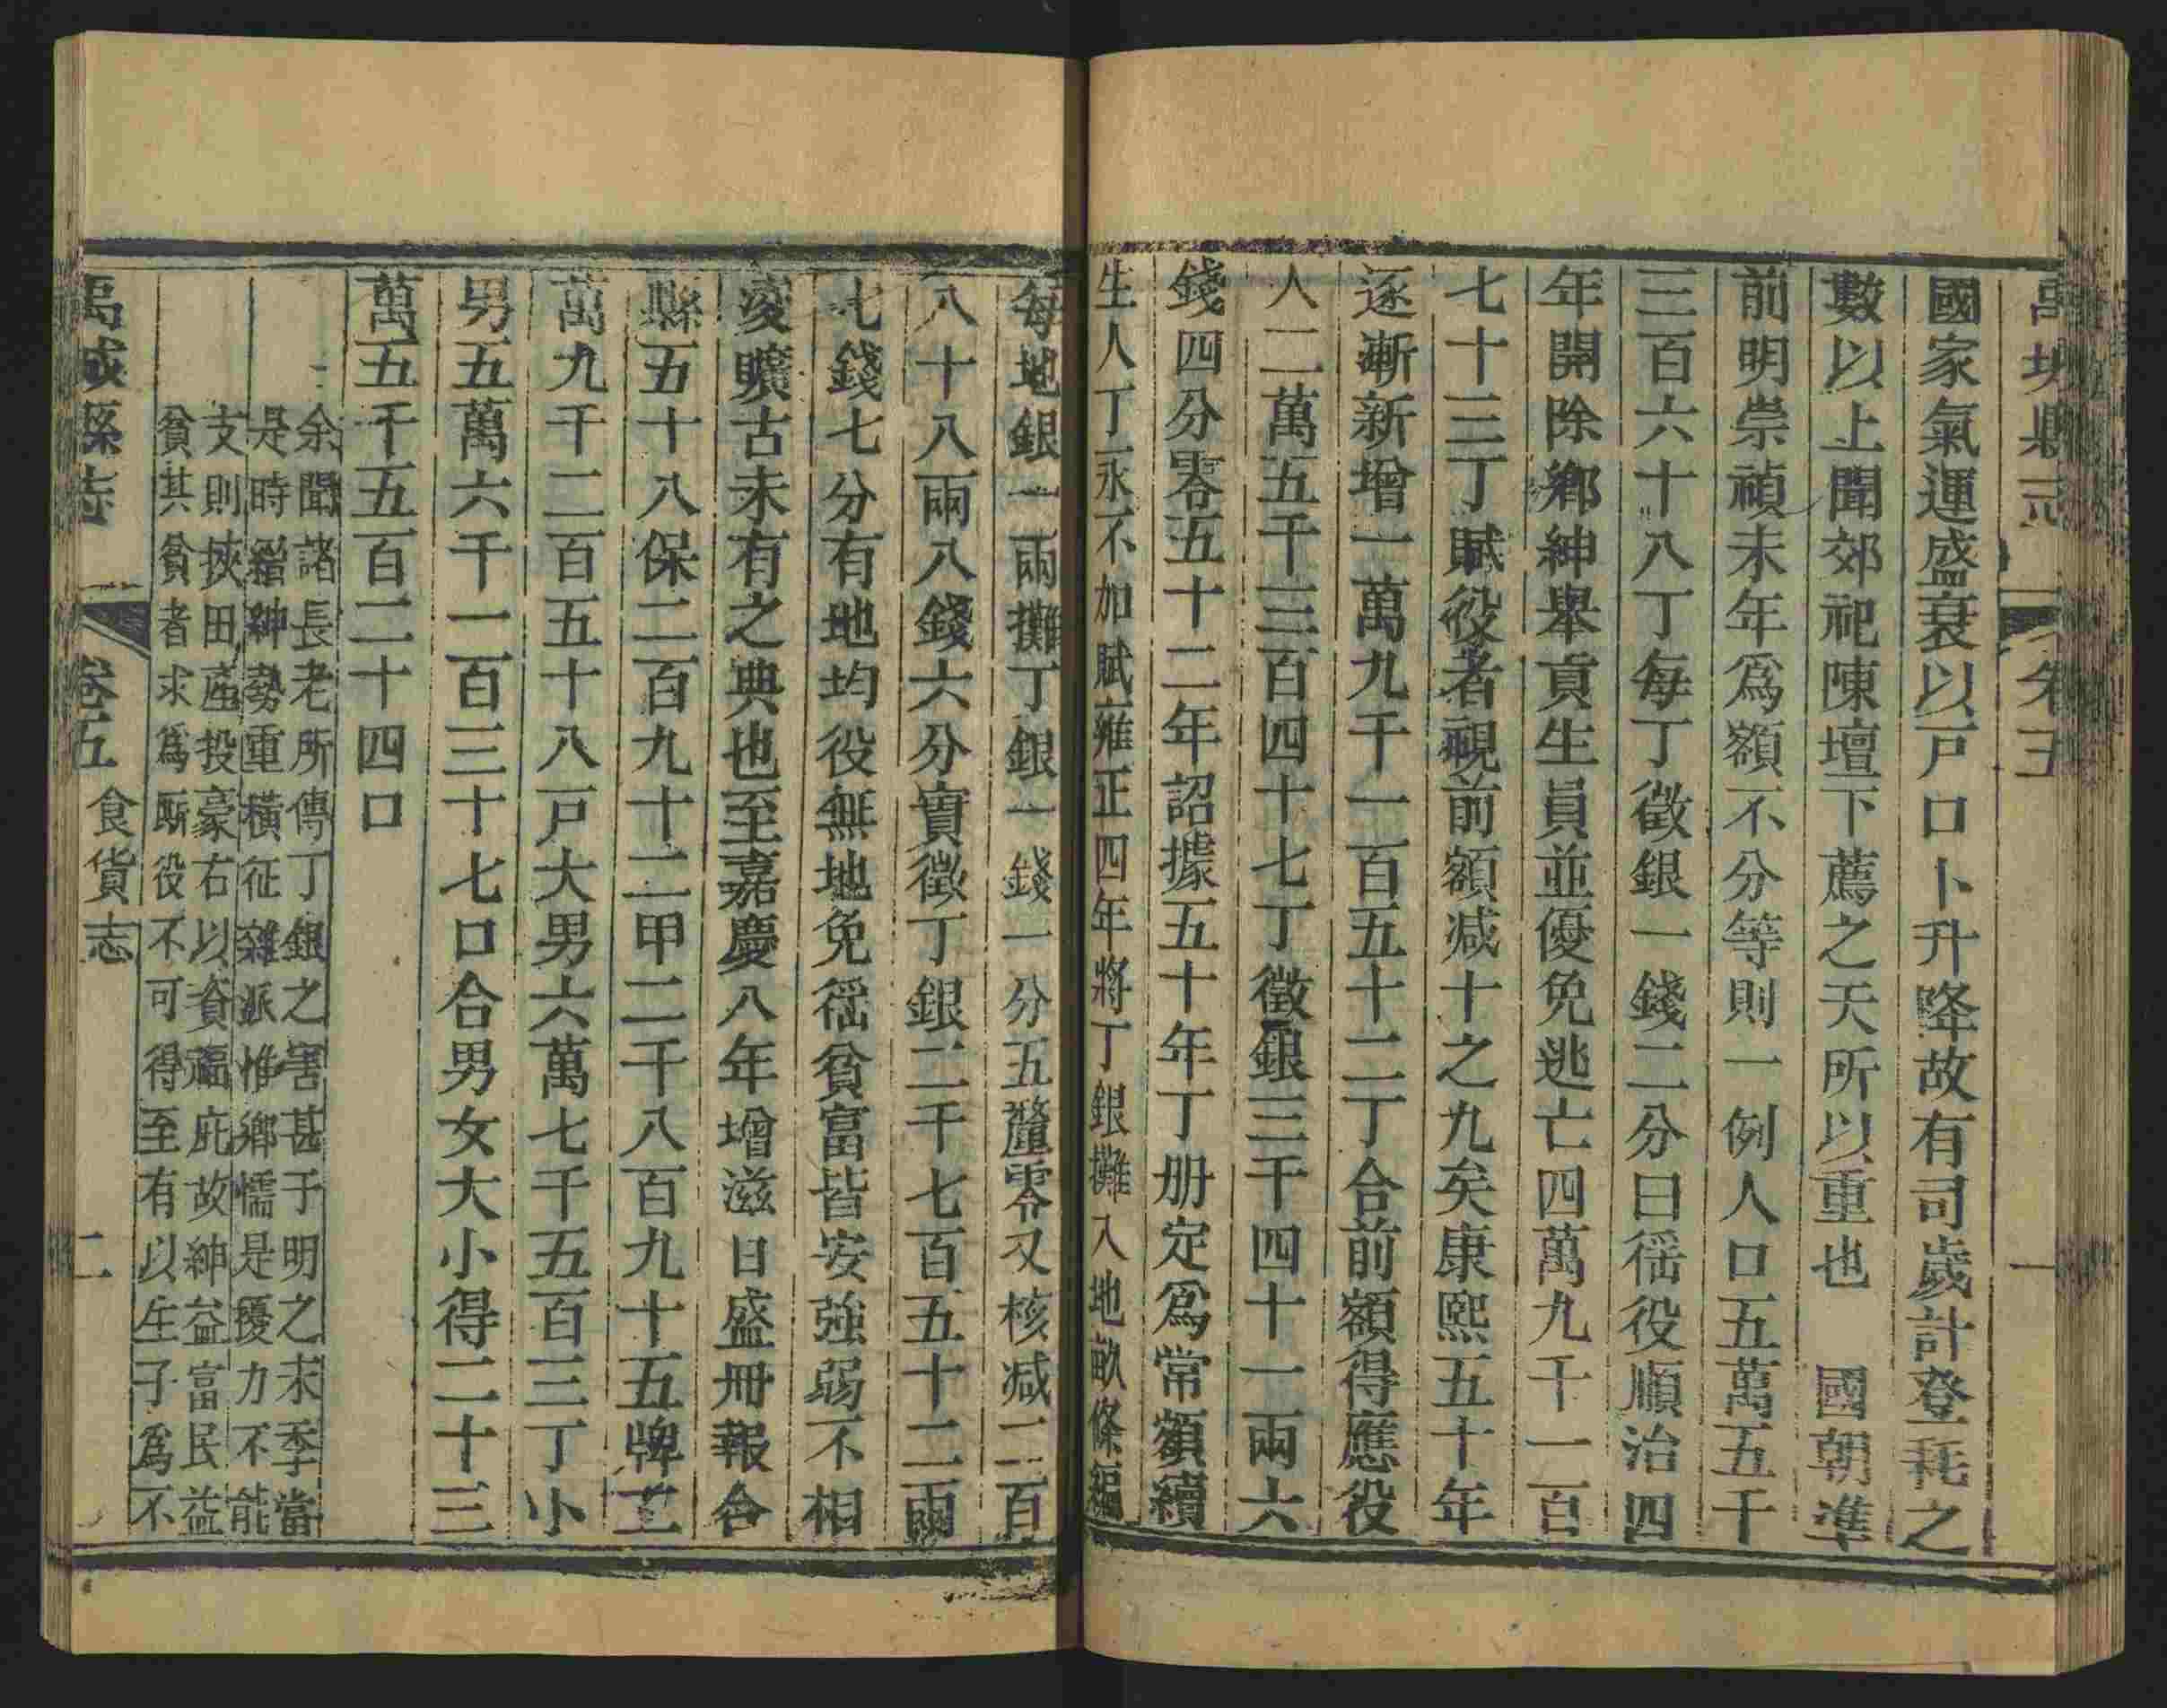 禹城縣志
卷五
一
國家氣運盛衰以戸口卜升降故有司歲計登耗之
數以上聞郊祀陳壇下薦之天所以重也 國朝準
前明崇禎未年爲額不分等則一例人口五萬五千
三百六十八丁每丁徵銀一錢二分曰徭役順治四
年開除鄉紳舉貢生員並優免逃亡四萬九千一百
七十三丁賦役者視前額减十之九矣康熙五十年
逐漸新增一萬九千一百五十二丁合前額得應役
人二萬五千三百四十七丁徵銀三千四十一兩六
錢四分零五十二年詔據五十年丁册定爲常額續
生人丁永不加賦雍正四年將丁銀攤入地畝條編
每地銀一兩攤丁銀一錢一分五釐零又核减二百
八十八兩八錢六分實徵丁銀二千七百五十二兩
七錢七分有地均役無地免徭貧富皆安強弱不相
凌曠古未有之典也至嘉慶八年增滋日盛冊報合
縣五十八保二百九十二甲二千八百九十五牌二
萬九千二百五十八戸大男六萬七千五百三丁小
男五萬六千一百三十七口合男女大小得二十三
萬五千五百二十四口
余聞諸長老所傳丁銀之害甚于明之末季當
是時縉紳勢重橫征雜派惟鄉懦是擾力不能
支則挾田產投豪右以資福庇故紳益富民益
貧其貧者求爲厮役不可得至有以生子爲不
禹城縣志
卷五 食貨志
二